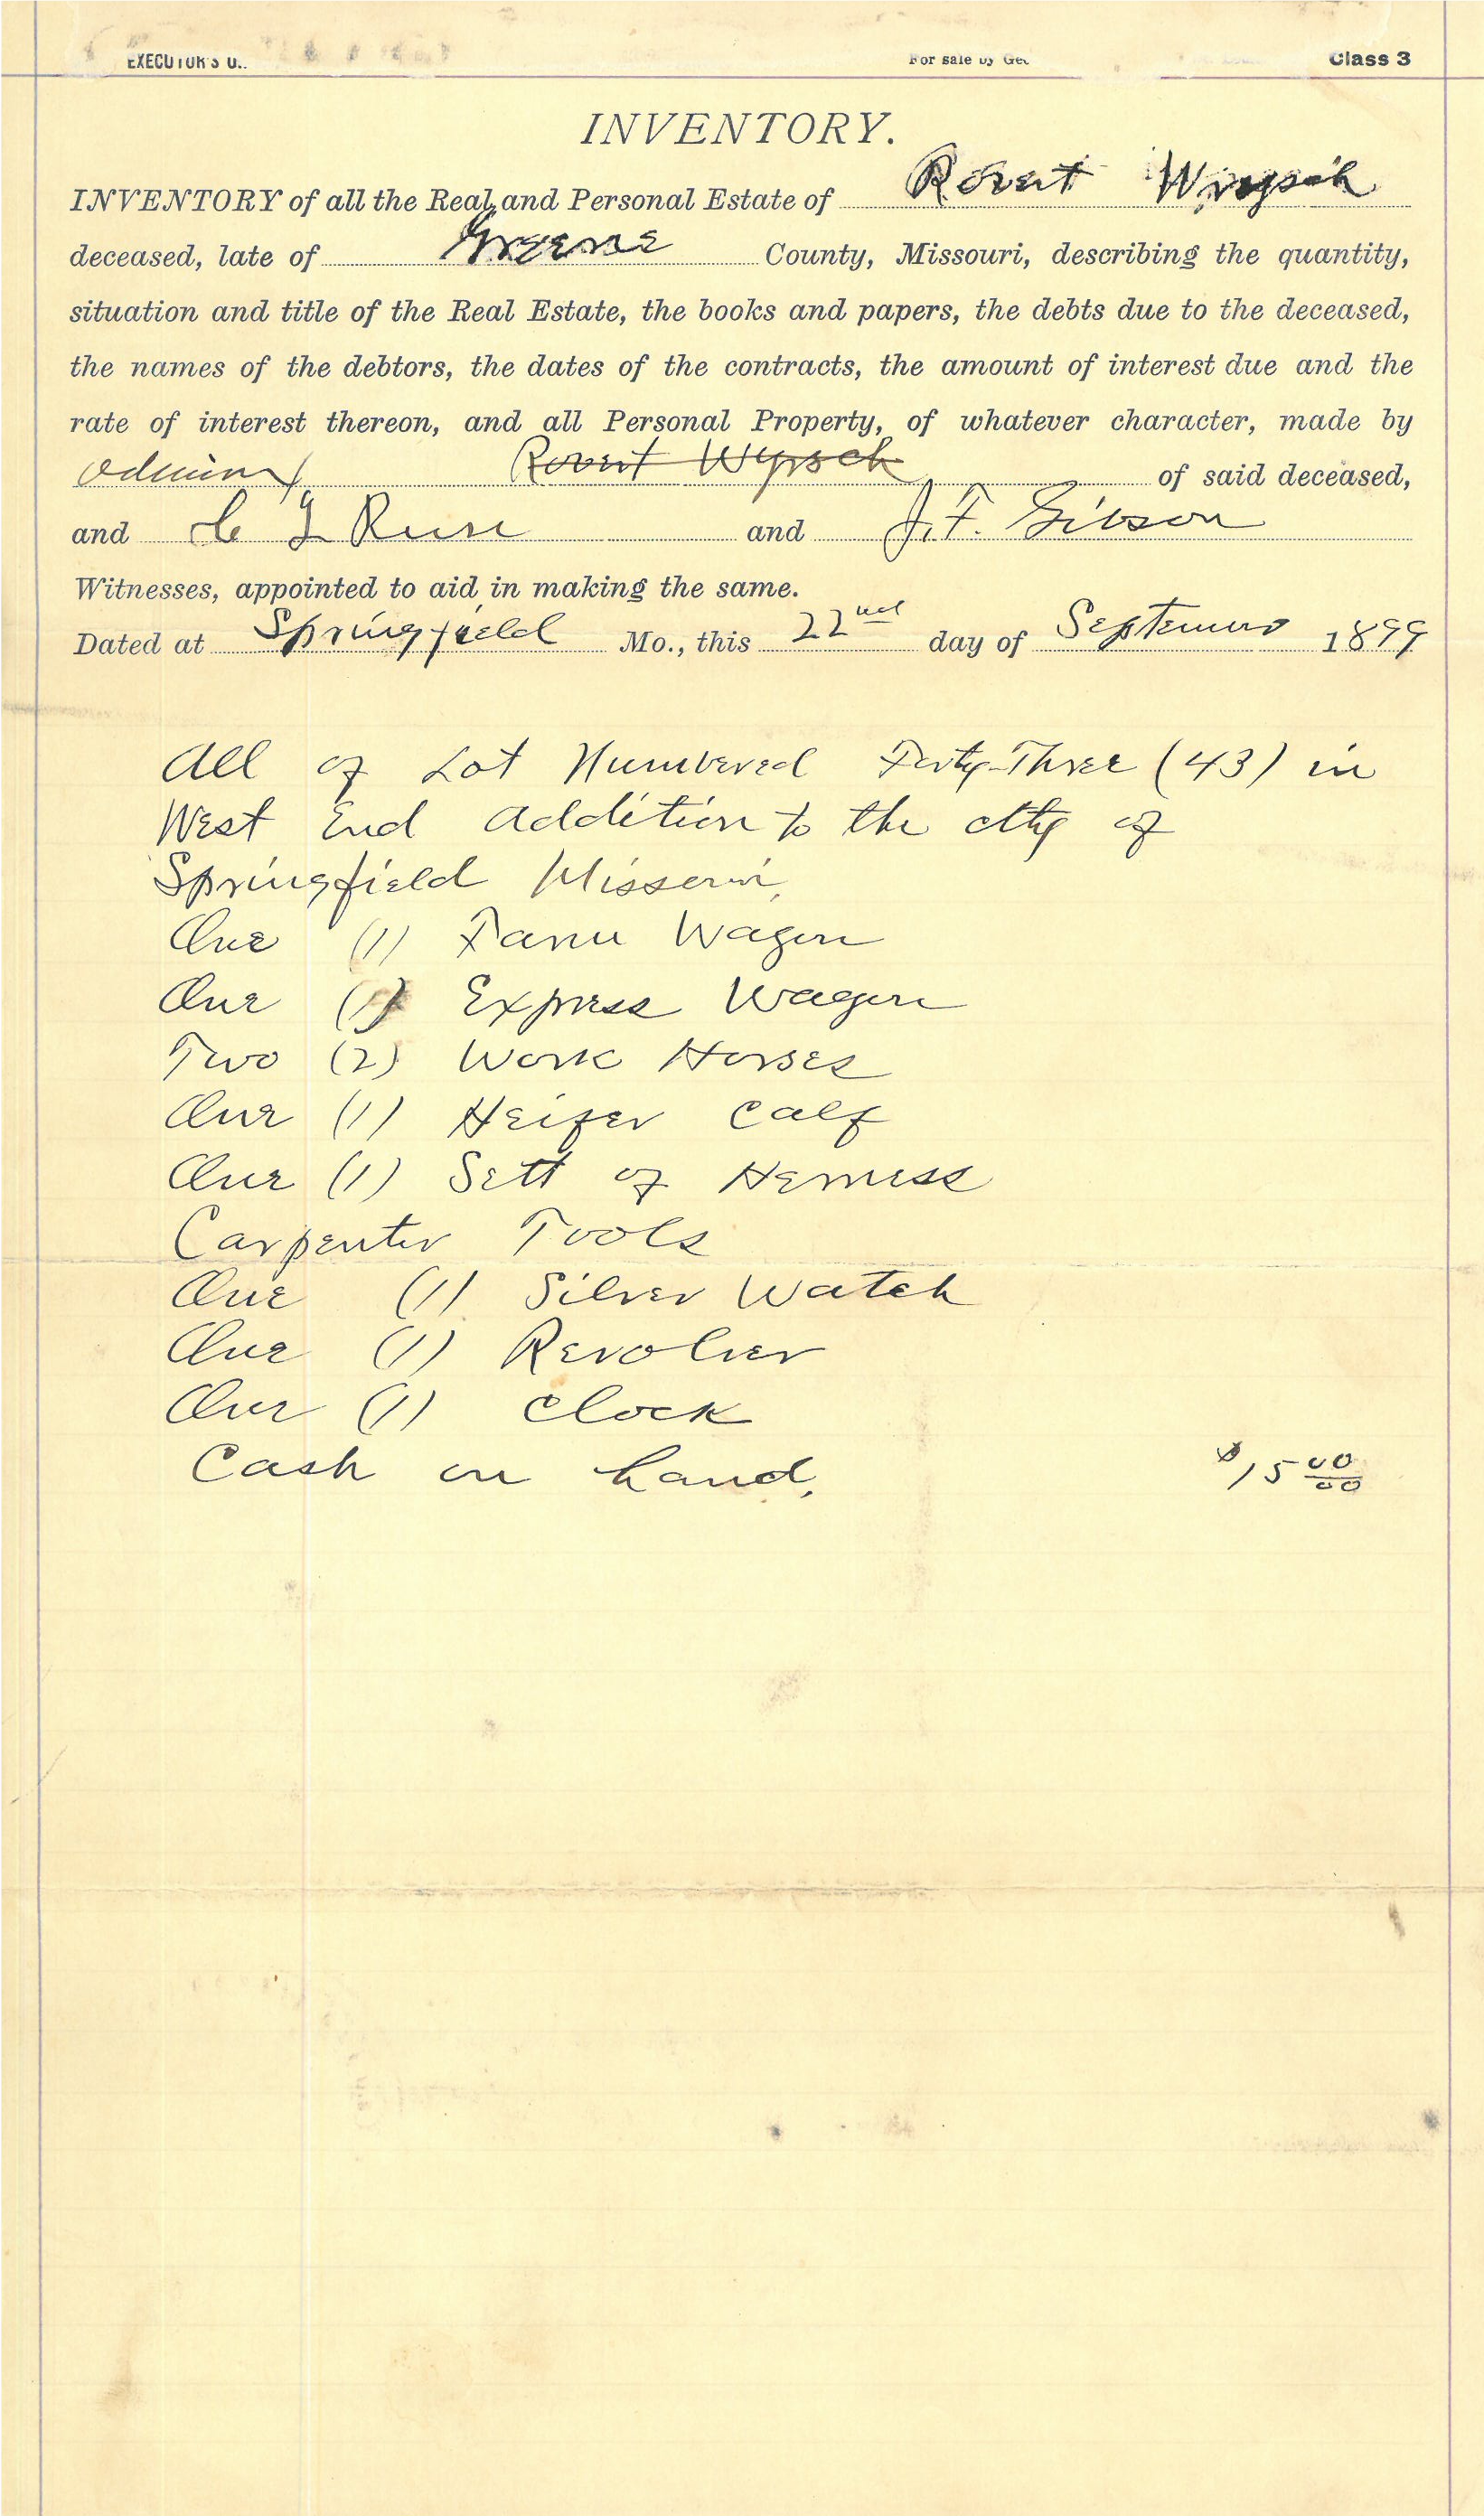 EXECUTOR'S For sale by Class 3
INVENTORY.
INVENTORY of all the Real and Personal Estate of Robert Wrysch
deceased, late of Greene County, Missouri, describing the quantity,
situation and title of the Real Estate, the books and papers, the debts due to the deceased,
the names of the debtors, the dates of the contracts, the amount of interest due and the
rate of interest thereon, and all Personal Property, of whatever character, made by
Robert Wyrsch of said deceased,
and and J. F. Gibson
Witnesses, appointed to aid in making the same.
Dated at Springfield Mo., this 22nd day of September 1899
All of Lot Numbered Forty-Three (43) in
West End Addition to the city of
Springfield Missouri,
One (1) Farm Wagon
One (1) Express Wagon
Two (2) Work Horses
One (1) Heifer Calf
One (1) Sett of Herness
Carpenter Tools
One (1) Silver Watch
One (1) Revolver
One (1) Clock
Cash on hand, $15 00/00